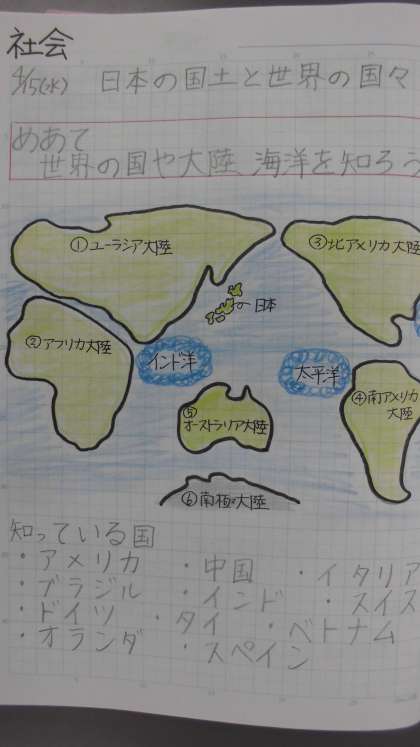 社会
4/15(水) 日本の国土と世界の国々
めあて
世界の国や大陸、海洋を知ろう
①ユーラシア大陸
③北アメリカ大陸
日本
②アフリカ大陸
インド洋
太平洋
④南アメリカ
大陸
⑤
オーストラリア大陸
⑥南極大陸
知っている国
・アメリカ ・中国 ・イタリア
・ブラジル ・インド ・スイス
・ドイツ ・タイ ・ベトナム
・オランダ ・スペイン